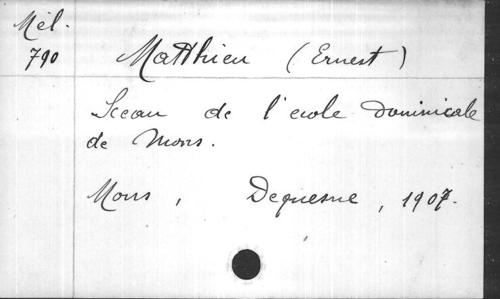 Mél.
790
Matthieu (Ernest)
Sceau de l'école dominicale
de Mons.
Mons, Dequesne, 1907.